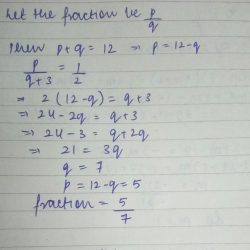 Let the fraction be p/q
Then p+q = 12 ⇒ p = 12-q
p/(q+3) = 1/2
⇒ 2(12-q) = q+3
⇒ 24-2q = q+3
⇒ 24-3 = q+2q
⇒ 21 = 3q
q = 7
p = 12-q = 5
fraction = 5/7